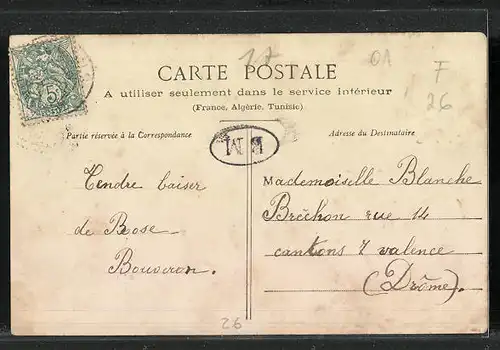 17
01
F
26
5
CARTE POSTALE
A utiliser seulement dans le service intérieur
(France, Algérie, Tunisie)
Partie réservée à la Correspondance
Adresse du Destinataire
Tendre baiser
de Rose
Bouveron.
Mademoiselle Blanche
Bréchon rue 14
cantons 7 valence
(Drôme).
26